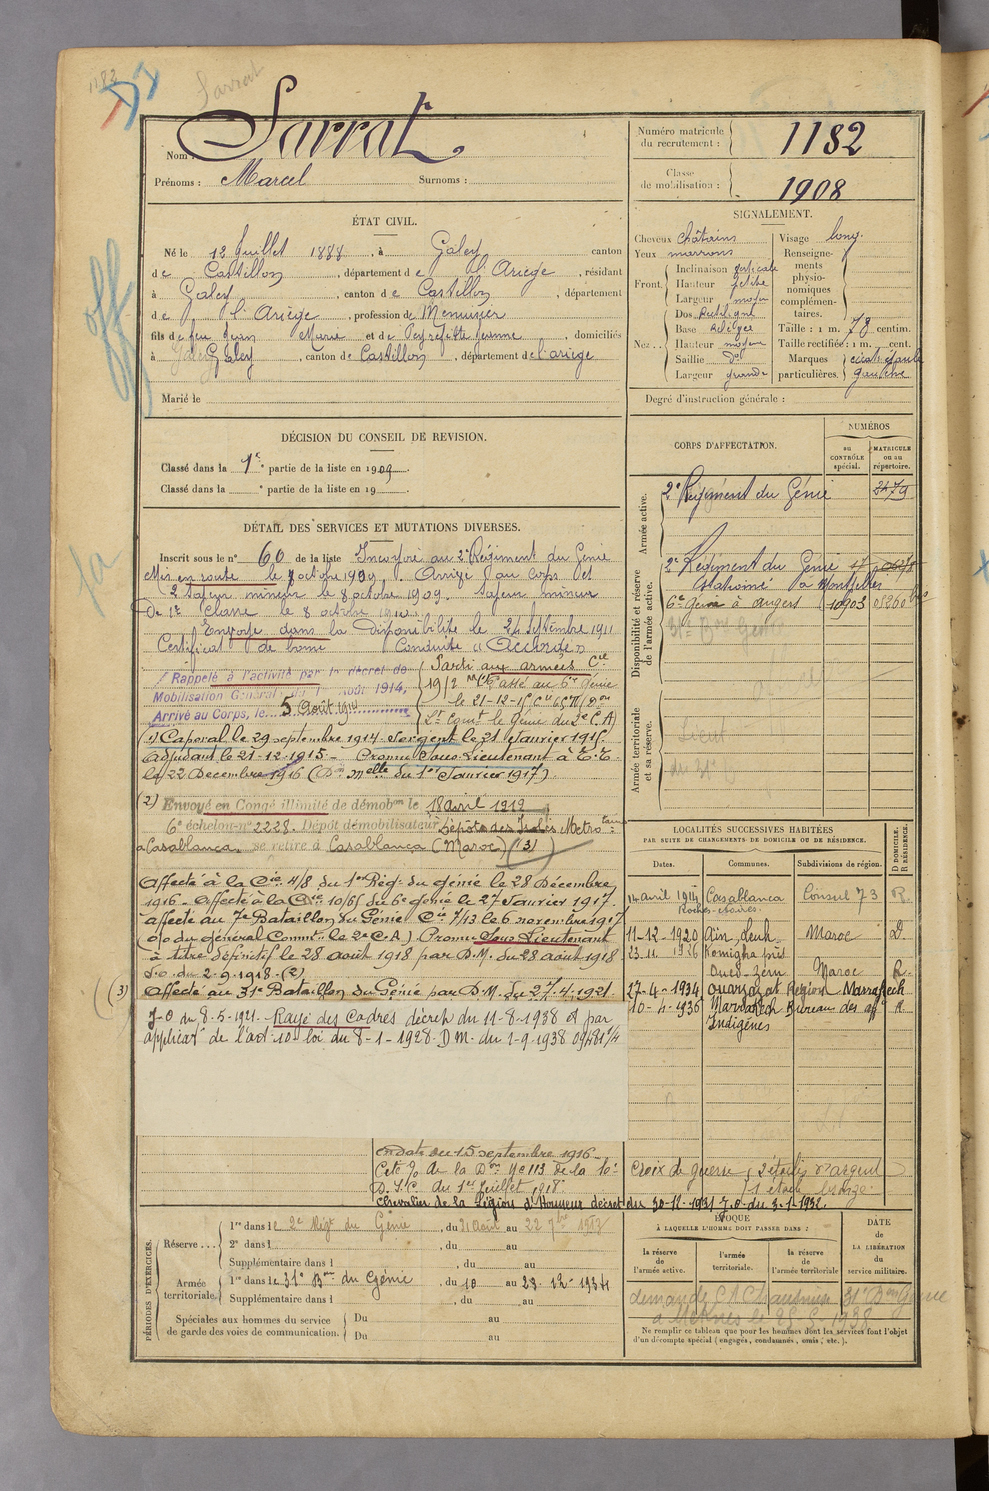 1182
Sarrat
Nom : Sarrat
Prénoms : Marcel Surnoms :
Numéro matricule du recrutement : 1182
Classe de mobilisation : 1908
ÉTAT CIVIL.
Né le 12 Juillet 1888, à Galey canton
de Castillon, département de l'Ariège, résidant
à Galey, canton de Castillon, département
de l'Ariège, profession de Menuisier
fils de feu Jean Marie et de Peyrefitte Jeanne, domiciliés
à Galey, canton de Castillon, département de l'ariège
Marié le
SIGNALEMENT.
Cheveux châtains
Yeux marrons
Front. Inclinaison verticale
Hauteur petite
Largeur moyen
Nez. Dos Rectiligne
Base Relevée
Hauteur moyen
Saillie do
Largeur grande
Visage long.
Renseignements physionomiques complémentaires.
Taille : 1 m. 78 centim.
Taille rectifiée : 1 m. cent.
Marques particulières. gauche
Degré d'instruction générale :
DÉCISION DU CONSEIL DE REVISION.
Classé dans la 1e partie de la liste en 1909.
Classé dans la e partie de la liste en 19 .
CORPS D'AFFECTATION.
NUMÉROS
au CONTRÔLE spécial.
MATRICULE ou au répertoire.
Armée active.
2e Régiment du Génie 3479
Disponibilité et réserve de l'armée active.
2e Régiment du Génie
stationné à Montpellier
6e Génie à angers 10903
31e Bon Génie
Armée territoriale et sa réserve.
DÉTAIL DES SERVICES ET MUTATIONS DIVERSES.
Inscrit sous le n° 60 de la liste Incorporé au 2e Régiment du Génie
Mis en route le 7 octobre 1909. Arrivé au corps et
2e Sapeur mineur le 8 octobre 1909. Sapeur mineur
de 1re Classe le 8 octobre 1910.
Envoyé dans la disponibilité le 24 Septembre 1911
Certificat de bonne Conduite "Accordé"
Rappelé à l'activité par le décret de
Mobilisation Générale du 1 Août 1914,
Arrivé au Corps, le 5 Août 1914
Parti aux armées Cie
19/2 Passé au 6me Génie
le 21-12-15
Lt Comt le Génie du 2e C.A)
(1) Caporal le 29 septembre 1914. Sergent le 21 Janvier 1915
Adjudant le 21-12-1915 - Promu Sous-Lieutenant à T.T.
le 22 Décembre 1916 (Don Melle du 1er Janvier 1917).
(2) Envoyé en Congé illimité de démobon le 18 avril 1919
6e échelon n° 2228. Dépôt démobilisateur Dépôt des Isolés Métrotains
à Casablanca. se retire à Casablanca (Maroc) (3)
Affecté à la Cie 4/8 du 1er Rég. du génie le 28 Décembre
1916 - Affecté à la Cie 10/65 du 6e génie le 27 Janvier 1917.
affecté au 7e Bataillon du Génie Cie 7/13 le 6 novembre 1917
(o/o du général Commt le 2e C.A) Promu Sous-Lieutenant
à titre définitif le 28 août 1918 par D.M. du 28 août 1918
J.O. du 2-9-1918. (2)
(3) Affecté au 31e Bataillon du Génie par D.M. du 27.4.1921.
J-O du 8-5-1921. Rayé des Cadres décret du 11-8-1938 et par
applicat de l'art 10 loi du 8-1-1928. D M. du 1-9-1938
en date du 15 septembre 1916.
D.I.C. du 1er Juillet 1918.
Chevalier de la Légion d'Honneur décret du 30-12-1931 J.O du 3-1-1932.
Croix de guerre, 2 étoiles d'argent
1 étoile bronze
LOCALITÉS SUCCESSIVES HABITÉES
PAR SUITE DE CHANGEMENTS DE DOMICILE OU DE RÉSIDENCE.
Dates. Communes. Subdivisions de région. D DOMICILE. R RÉSIDENCE.
14 avril 1914 Casablanca Consul 73 R
Roches-noires
11-12-1920 Aïn Leuh Maroc D.
23.11 1926 Komigha près
Oued-Zem Maroc R.
27-4-1934 Ouarzazat Région Marrakech
10-4-1936 Marrakech Bureau des aff R
Indigènes
PÉRIODES D'EXERCICES.
Réserve... 1re dans le 2e Régt du Génie, du 31 Août au 22 7bre 1913
2e dans l , du au
Supplémentaire dans l , du au
Armée territoriale. 1re dans le 31e Bon du Génie, du 10 au 23-12-1934
Supplémentaire dans l , du au
Spéciales aux hommes du service de garde des voies de communication. Du au
Du au
ÉPOQUE
À LAQUELLE L'HOMME DOIT PASSER DANS :
la réserve de l'armée active.
l'armée territoriale.
la réserve de l'armée territoriale
DATE de LA LIBÉRATION du service militaire.
Ne remplir ce tableau que pour les hommes dont les services font l'objet
d'un décompte spécial (engagés, condamnés, omis, etc.).